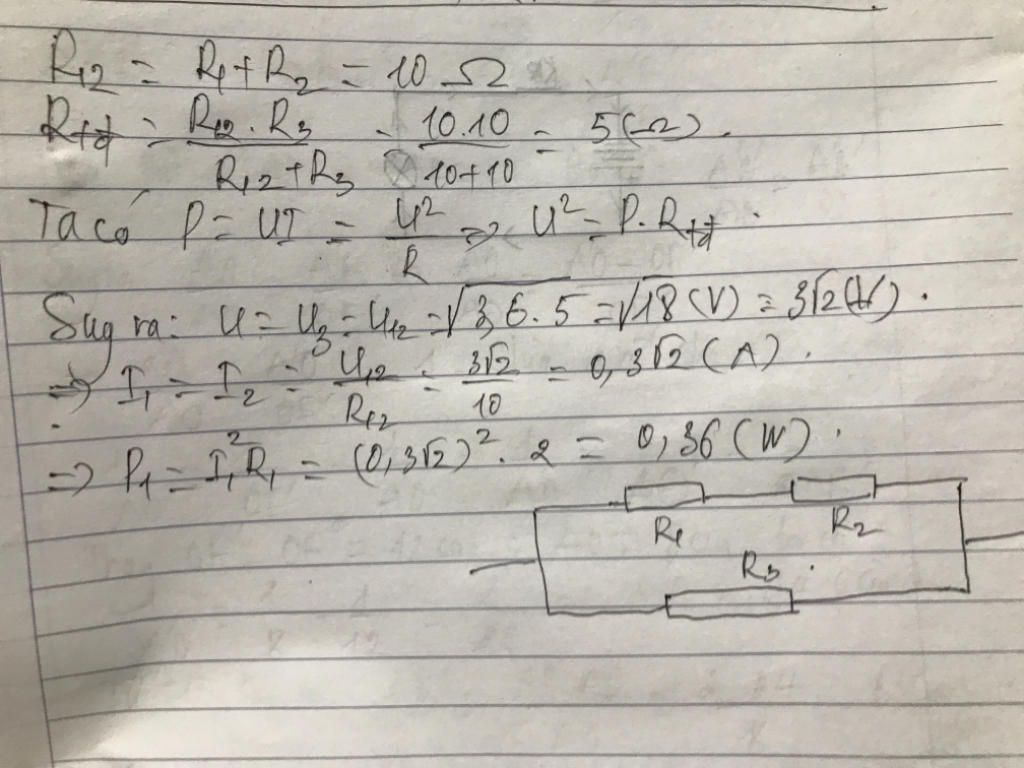 R₁₂ = R₁ + R₂ = 10 Ω
Rtđ = R₁₂ . R₃ / R₁₂ + R₃ = 10.10 / 10+10 = 5 (Ω).
Ta có P = UI = U² / R => U² = P. Rtđ.
Suy ra: U = U₃ = U₁₂ = √3,6.5 = √18 (V) = 3√2 (V).
=> I₁ = I₂ = U₁₂ / R₁₂ = 3√2 / 10 = 0,3√2 (A).
=> P₁ = I₁² R₁ = (0,3√2)². 2 = 0,36 (W).
R₁ R₂
R₃